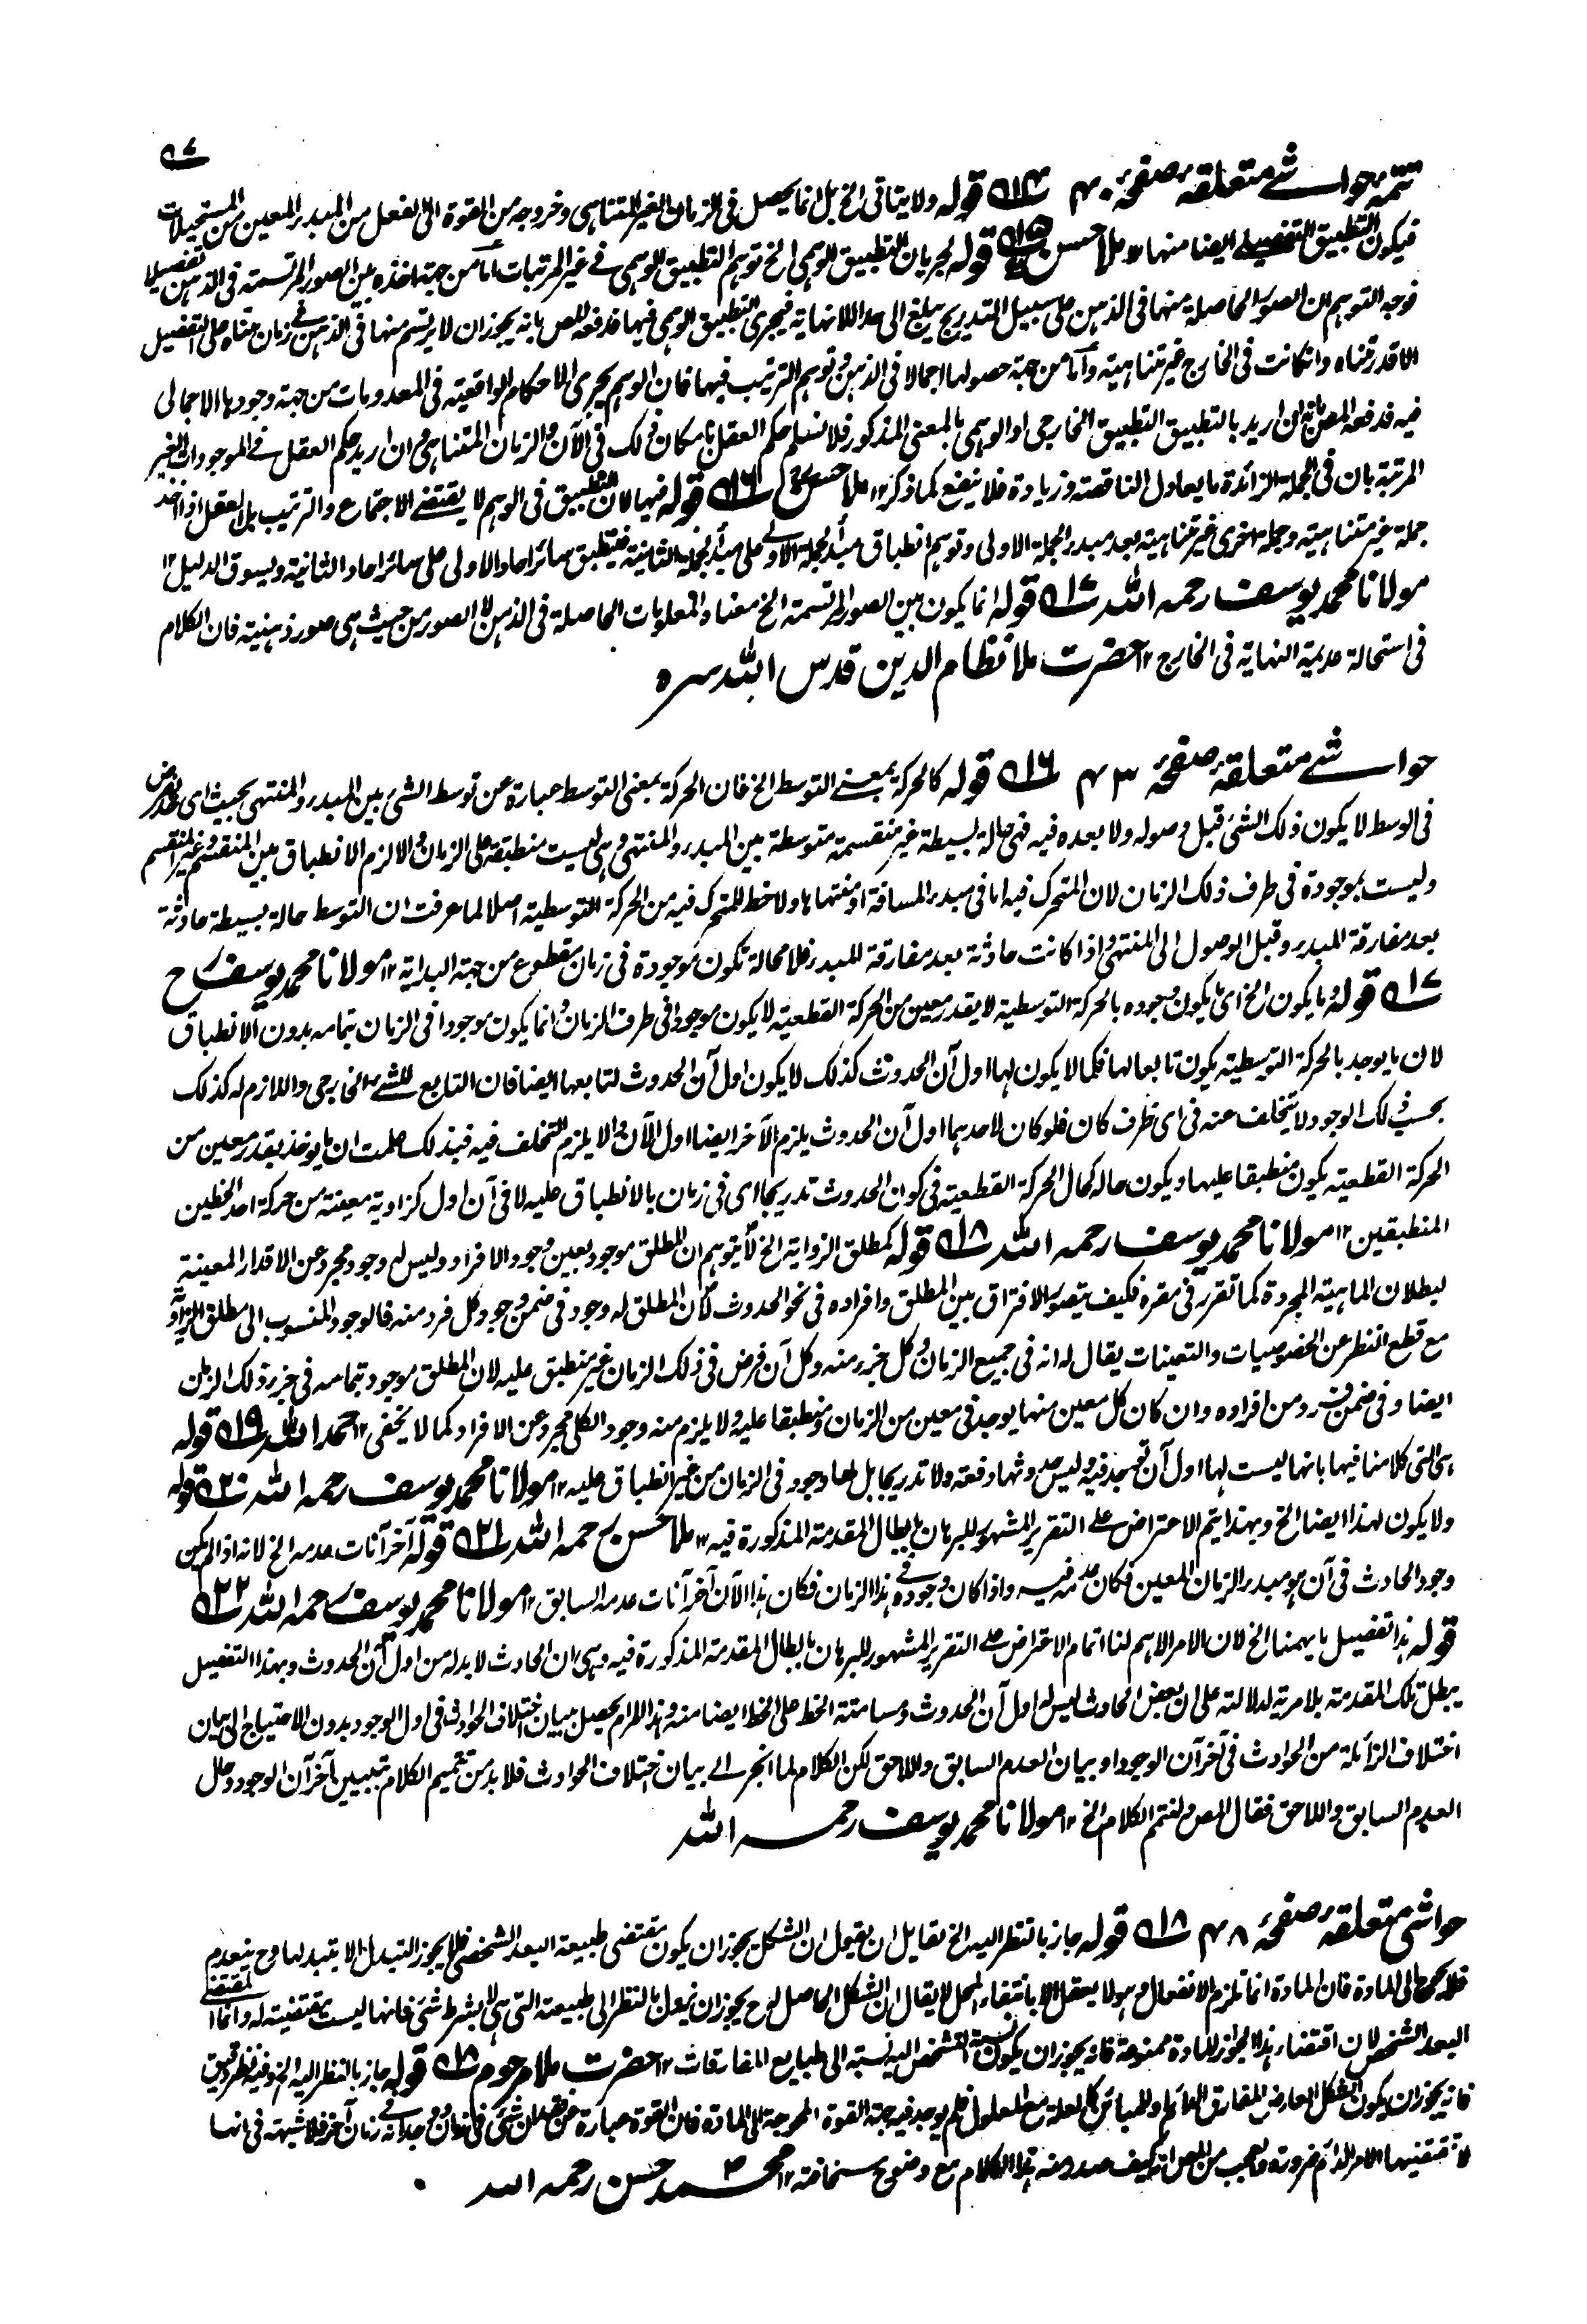 ٥٧
تتمہ حواشے متعلقہ صفحہ ٤٠ ١٤ قولہ ولا يتاتى الخ بل انما يحصل فى الزمان الغير المتناہى وخروجہ من القوة الى الفعل من المبدء المعين من المستحيلات
فيكون التطبيق التفصيلے ايضا منها ١٢ ملا حسن ١٥ قولہ لجريان التطبيق الوہمى الخ توہم التطبيق الوہمى فے غير المرتبات اما من جہة اخذہ بين الصور المرتسمة فى الذہن تفصيلا
فوجہ التوہم ان الصور الحاصلة منها فى الذہن على سبيل التدريج يبلغ الى حد اللانہاية فيجرى التطبيق الوہمى فيها فدفعہ المص بانہ يجوز ان لا يرتسم منها فى الذہن فے زمان متناہ على التفصيل
الا قدر متناہ وان كانت فى الخارج غير متناہية واما من جہة حصولها اجمالا فى الذہن وتوہم الترتيب فيها فان الوہم يجرى الاحكام الواقعية فى المعدومات من جہة وجودہا الاجمالى
فيہ فدفعہ المص بانہ ان اريد بالتطبيق التطبيق الخارجى او الوہمى بالمعنى المذكور فلا نسلم حكم العقل بامكان ذلك فى الآن والزمان المتناہى وان اريد حكم العقل فے الموجودات الغير
المرتبة بان فى الجملة الزائدة ما يعادل الناقصة وزيادة فلا ينفع كما ذكر ١٢ ملا حسن ١٦ قولہ فيها لان التطبيق فى الوہم لا يقتضے الاجتماع والترتيب بل العقل اذا اخذ
جملة غير متناہية وجملة اخرى غير متناہية بعد مبدء الجملة الاولى وتوہم انطباق مبدأ الجملة الاولے على مبدأ الجملة الثانية فينطبق سائر احاد الاولى على سائر احاد الثانية ويسوق الدليل ١٢
مولانا محمد يوسف رحمہ اللہ ١٧ قولہ انما يكون بين الصور المرتسمة الخ معناہ المعلومات الحاصلة فى الذہن لا الصور من حيث ہى صور ذہنية فان الكلام
فى استحالة عديمة النہاية فى الخارج ١٢ حضرت ملا نظام الدين قدس اللہ سرہ
حواشے متعلقہ صفحہ ٤٣ ١٦ قولہ كالحركة بمعنے التوسط الخ فان الحركة بمعنى التوسط عبارة عن توسط الشئ بين المبدء والمنتہى بحيث اى حد يفرض
فى الوسط لا يكون ذلك الشئ قبل وصولہ ولا بعدہ فيہ فہى حالة بسيطة غير منقسمة متوسطة بين المبدء والمنتہى وہى ليست منطبقة على الزمان والا لزم الانطباق بين المنقسم وغير المنقسم
وليست بموجودة فى طرف ذلك الزمان لان المتحرك فيہ اما فى مبدء المسافة او منتہاہا ولا حظ للمتحرك فيہ من الحركة التوسطية اصلا لما عرفت ان التوسط حالة بسيطة حادثة
بعد مفارقة المبدء وقبل الوصول الى المنتہى واذا كانت حادثة بعد مفارقة المبدء فلا محالة تكون موجودة فى زمان مقطوع من جہة البداية ١٢ مولانا محمد يوسف رح
١٧ قولہ وما يكون الخ اى ما يكون وجودہ بالحركة التوسطية لا بقدر معين من الحركة القطعية لا يكون موجودا فى طرف الزمان وانما يكون موجودا فى الزمان بتمامہ بدون الانطباق
لان ما يوجد بالحركة التوسطية يكون تابعا لها فكما لا يكون لها اول آن الحدوث كذلك لا يكون اول آن الحدوث لتابعها ايضا فان التابع للشے الخارجى واللازم لہ كذلك
بحسب ذلك الوجود لا يتخلف عنہ فى اى ظرف كان فلو كان لاحدہما اول آن الحدوث يلزم الآخر ايضا اول الآن والا يلزم التخلف فيہ فبذلك علمت ان ما يوخذ بقدر معين من
الحركة القطعية يكون منطبقا عليها ويكون حالہ كحال الحركة القطعية فى كون الحدوث تدريجا اى فى زمان بالانطباق عليہ لا فى آن اول كزاوية معينة من حركة احد الخطين
المنطبقين ١٢ مولانا محمد يوسف رحمہ اللہ ١٨ قولہ كمطلق الزواية الخ لا يتوہم ان المطلق موجود بعين وجود الافراد وليس لہ وجود مجرد عن الاقدار المعينة
لبطلان الماہية المجردة كما تقرر فى مقرہ فكيف يتصور الافتراق بين المطلق وافرادہ فى نحو الحدوث لان المطلق لہ وجود فى ضمن وجود كل فرد منہ فالوجود المنسوب الى مطلق الزاوية
مع قطع النظر عن الخصوصيات والتعينات يقال لہ انہ فى جميع الزمان وكل جزء منہ وكل آن فرض فى ذلك الزمان غير منطبق عليہ لان المطلق موجود بتمامہ فى جزء ذلك الزمان
ايضا وفى ضمن فرد من افرادہ وان كان كل معين منها يوجد فى معين من الزمان ومنطبقا عليہ ولا يلزم منہ وجود الكلى مجرد عن الافراد كما لا يخفى ١٢ حمد اللہ ١٩ قولہ
ہى التى كلامنا فيها بانها ليست لها اول آن توجد فيہ وليس حدوثها دفعة ولا تدريجا بل لها وجود فى الزمان من غير انطباق عليہ ١٢ مولانا محمد يوسف رحمہ اللہ ٢٠ قولہ
ولا يكون لهذا ايضا الخ وبهذا يتم الاعتراض على التقرير المشہور للبرہان بابطال المقدمة المذكورة فيہ ١٢ ملا حسن رحمہ اللہ ٢١ قولہ آخر آنات عدمہ الخ لانہ اذا لم يكن
وجود الحادث فى آن ہو مبدء الزمان المعين فكان عدمہ فيہ واذا كان وجودہ فے ہذا الزمان فكان ہذا الآن آخر آنات عدمہ السابق ١٢ مولانا محمد يوسف رحمہ اللہ ٢٢
قولہ ہذا تفصيل ما يهمنا الخ لان الامر الاہم لنا اتمام الاعتراض على التقرير المشہور للبرہان بابطال المقدمة المذكورة فيہ وہى ان الحادث لا بد لہ من اول آن الحدوث وبهذا التفصيل
يبطل تلك المقدمة بلا مرية لدلالتہ على ان بعض الحادث ليس لہ اول آن الحدوث ومسامتة الخط على الخط ايضا منہ وہذا المرام يحصل ببيان اختلاف الحوادث فى اول الوجود بدون الاحتياج الى بيان
اختلاف الزائلة من الحوادث فى آخر آن الوجود او بيان العدم السابق واللاحق لكن الكلام لما انجر الے بيان اختلاف الحوادث فلا بد من تتميم الكلام بتبيين آخر آن الوجود وحال
العدم السابق واللاحق فقال المص ولنختم الكلام الخ ١٢ مولانا محمد يوسف رحمہ اللہ
حواشى متعلقہ صفحہ ٤٨ ١٨ قولہ جاز بالنظر اليہ الخ لقايل ان يقول ان الشكل يجوز ان يكون مقتضى طبيعة البعد الشخصى فلا يجوز التبدل الا بتبدلها وح ينعدم
فلا يحتاج الى المادة فان المادة انما تلزم الانفعال وہو لا يعقل الا بانتفاء المحل لا يقال ان الشكل الحاصل لہ ح يجوز ان يزول بالنظر الى طبيعتہ التى ہى لا بشرط شئ فانها ليست مقتضية لہ وانما المقتضے
البعد الشخصى لان اقتضاء ہذا الجواز للمادة ممنوعة فانہ يجوز ان يكون نسبة التشخص اليہ نسبتہ الى طبايع المفارقات ١٢ حضرت ملا مرحوم ١٨ قولہ جاز بالنظر اليہ الخ وفيہ نظر دقيق
فانہ يجوز ان يكون الشكل العارض المفارق الدائم والمبائن كالعلة مع المعلول فلم يوجد فيہ جہة القوة المحوجة الى المادة فان القوة عبارة عن فقدان شئ فے زمان ووجدانہ فے زمان آخر فلا شبہة فى انها
لا تقتضيها الامر الدائم ضرورة والعجب من المص انہ كيف صدر منہ ہذا الكلام مع وضوح سخافتہ ١٢ محمد حسن رحمہ اللہ